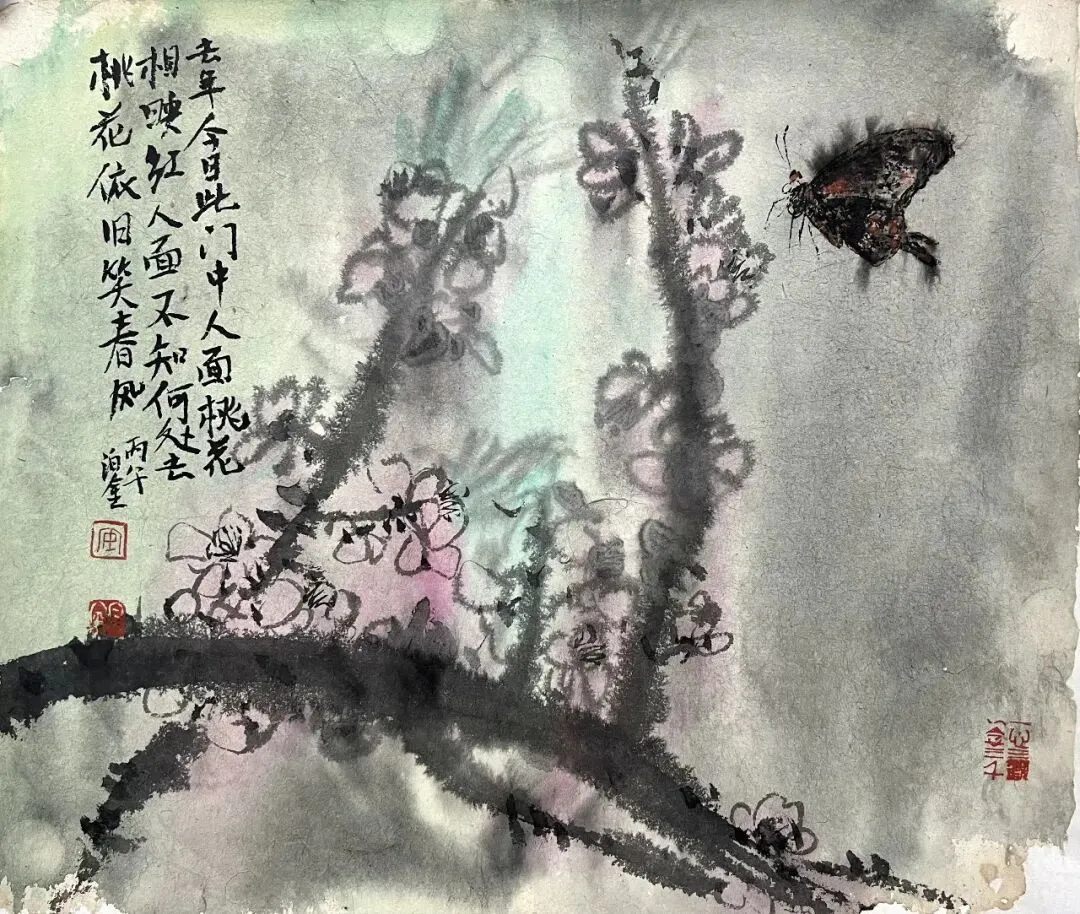 去年今日此门中人面桃花
相映红人面不知何处去
桃花依旧笑春风
丙午